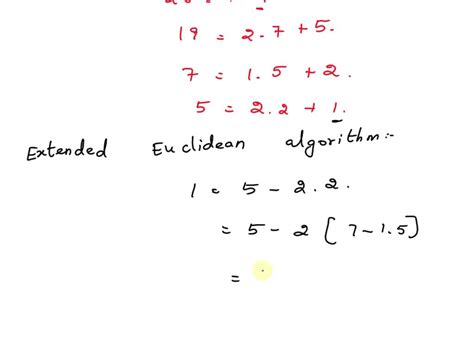 19 = 2.7 + 5.
7 = 1.5 + 2.
5 = 2.2 + 1.
Extended Euclidean algorithm:-
1 = 5 - 2.2.
= 5 - 2 [7 - 1.5)
=